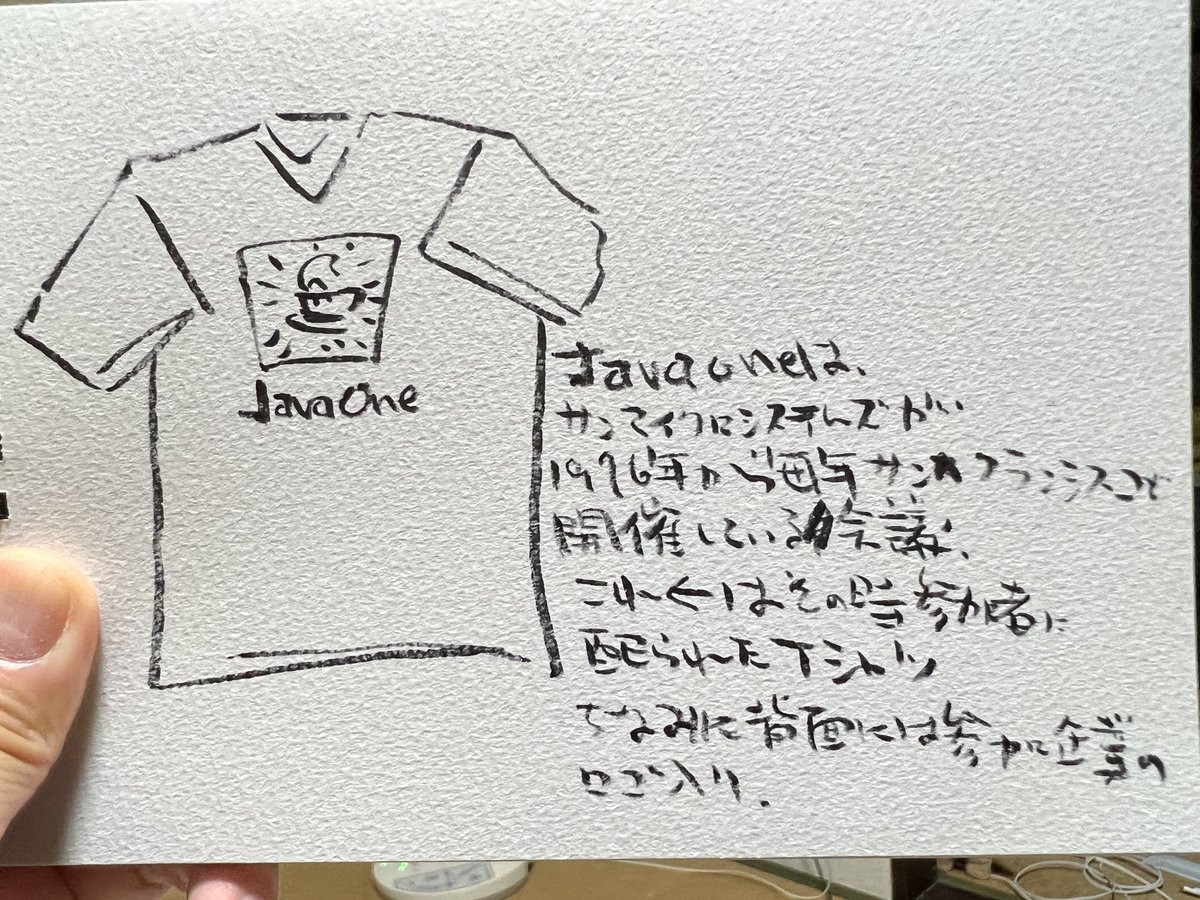 JavaOne
Javaoneは、
サンマイクロシステムズが
1996年から毎年サンフランシスコで
開催している会議.
これ←はその時参加者に
配られたTシャツ
ちなみに背面には参加企業の
ロゴ入り.